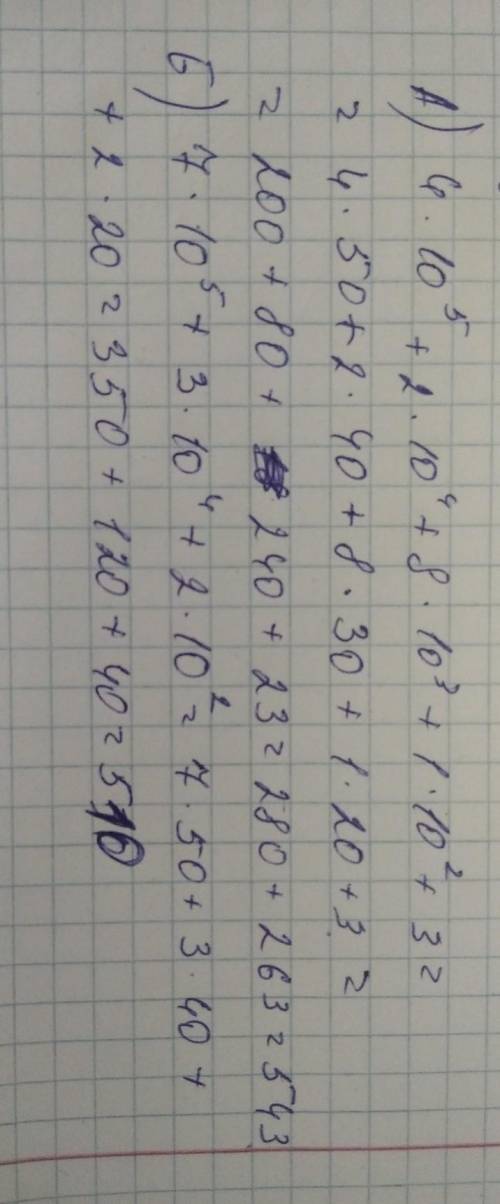 А) 4·10⁵ + 2·10⁴ + 8·10³ + 1·10² + 3 =
= 4·50 + 2·40 + 8·30 + 1·20 + 3 =
= 200 + 80 + 240 + 23 = 280 + 263 = 543
Б) 7·10⁵ + 3·10⁴ + 2·10² = 7·50 + 3·40 +
+ 2·20 = 350 + 120 + 40 = 510